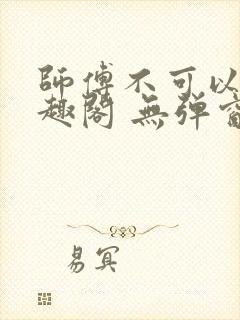 師傅不可以
趣閣 無弹窗
易冥